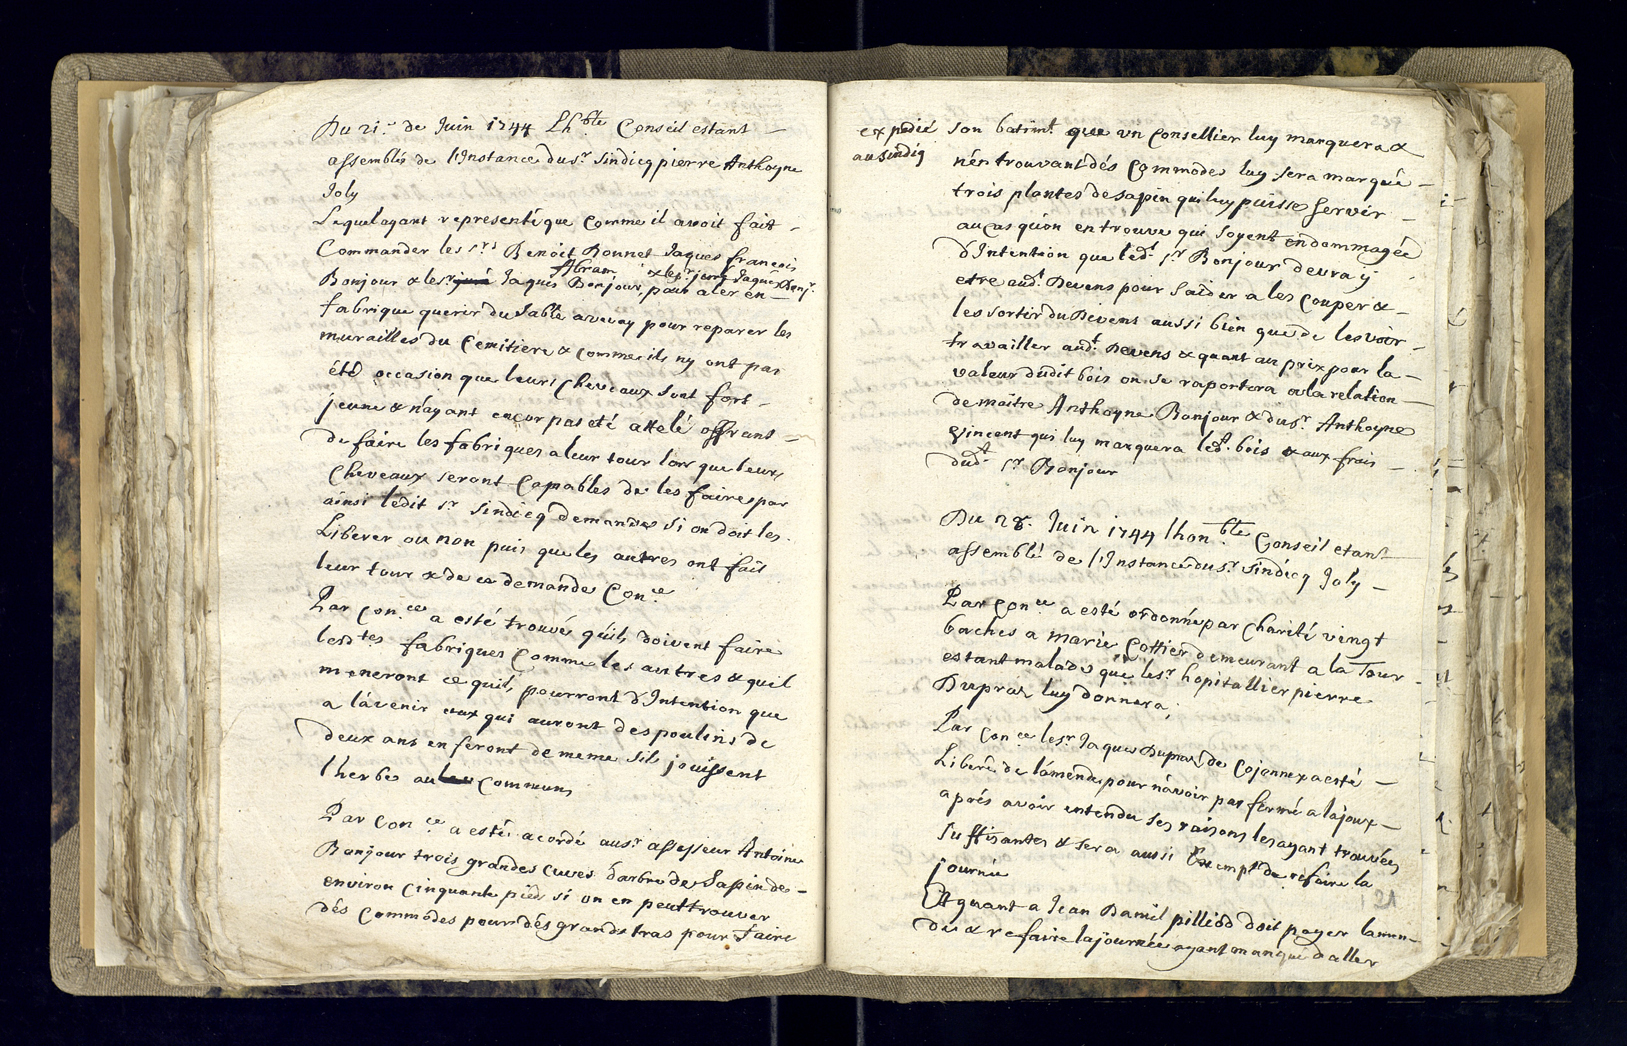 Du 21.e de Juin 1744 Lh.ble Conseil estant
assemblés de l'Instance du s.r Sindicq pierre Anthoyne
Joly
Lequel ayant representé que comme il avoit fait
Commander les s.rs Benoit Bonnet Jaques francois
Abram & le s.r juré Jaques Bonj.r
Bonjour & les.r juré Jaques Bonjour, pour aler en
fabrique querir du Sable avevay pour reparer les
murailles du Cemitiere & comme ils ny ont pas
été occasion que leurs Cheveaux sont fort
jeune & n'ayant encor pas eté attelé offrants
de faire les fabriques a leur tour lors que leurs
Cheveaux seront Capables de les faire, par
ainsi ledit s.r Sindicq demandes si on doit les
Liberer ou non puis que les autres ont fait
leur tour & de ce demande Con.ce
Par Con.ce a esté trouvé qu'ils doivent faire
lesd.tes fabriques Comme les autres & quil
meneront ce quils pourront d'Intention que
a l'avenir ceux qui auront des poulins de
deux ans en feront de meme sils jouissent
l'herbe au les communs
Par Con.ce a esté acordé aus.r assesseur Antoine
Bonjour trois grandes cuves d'arbre de Sapin de
environ Cinquante pieds si on en peut trouver
dés Commodes pour dés grands tras pour faire
expedié
au Sindiq
son batim.t que un Consellier luy marquera &
n'en trouvant dés Commodes luy sera marqué
trois plantes de sapin qui luy puisse servir
au cas qu'on en trouve qui soyent endommagée
d'Intention que led.t s.r Bonjour devra y
etre aud.t Devens pour s'aider a les Couper &
les sortir du Devens aussi bien que de les voir
travailler aud.t Devens & quant au prix pour la
valeur dudit bois on se raportera a la relation
de maitre Anthoyne Bonjour & du s.r Anthoyne
Vincent qui luy marquera led.t bois & aux frais
dud.t s.r Bonjour
Du 28. Juin 1744 l'hon.ble Conseil etant
assemblé de l'Instance du s.r Sindicq Joly
Par Con.ce a esté ordonné par Charité vingt
baches a Marie Cottier demeurant a la Tour
estant malade que les.r hopitallier pierre
Dupraz luy donnera;
Par Con.ce les.r Jaques Dupraz de Cojonnex a esté
Liberé de l'amende pour n'avoir pas fermé a lajoux
aprés avoir entendu ses raisons les ayant trouvées
suffisantes & sera aussi Exempt de refaire la
journée
Et quant a Jean Daniel pilliod doit payer lamen-
de & refaire la journée ayant manqué d'aller